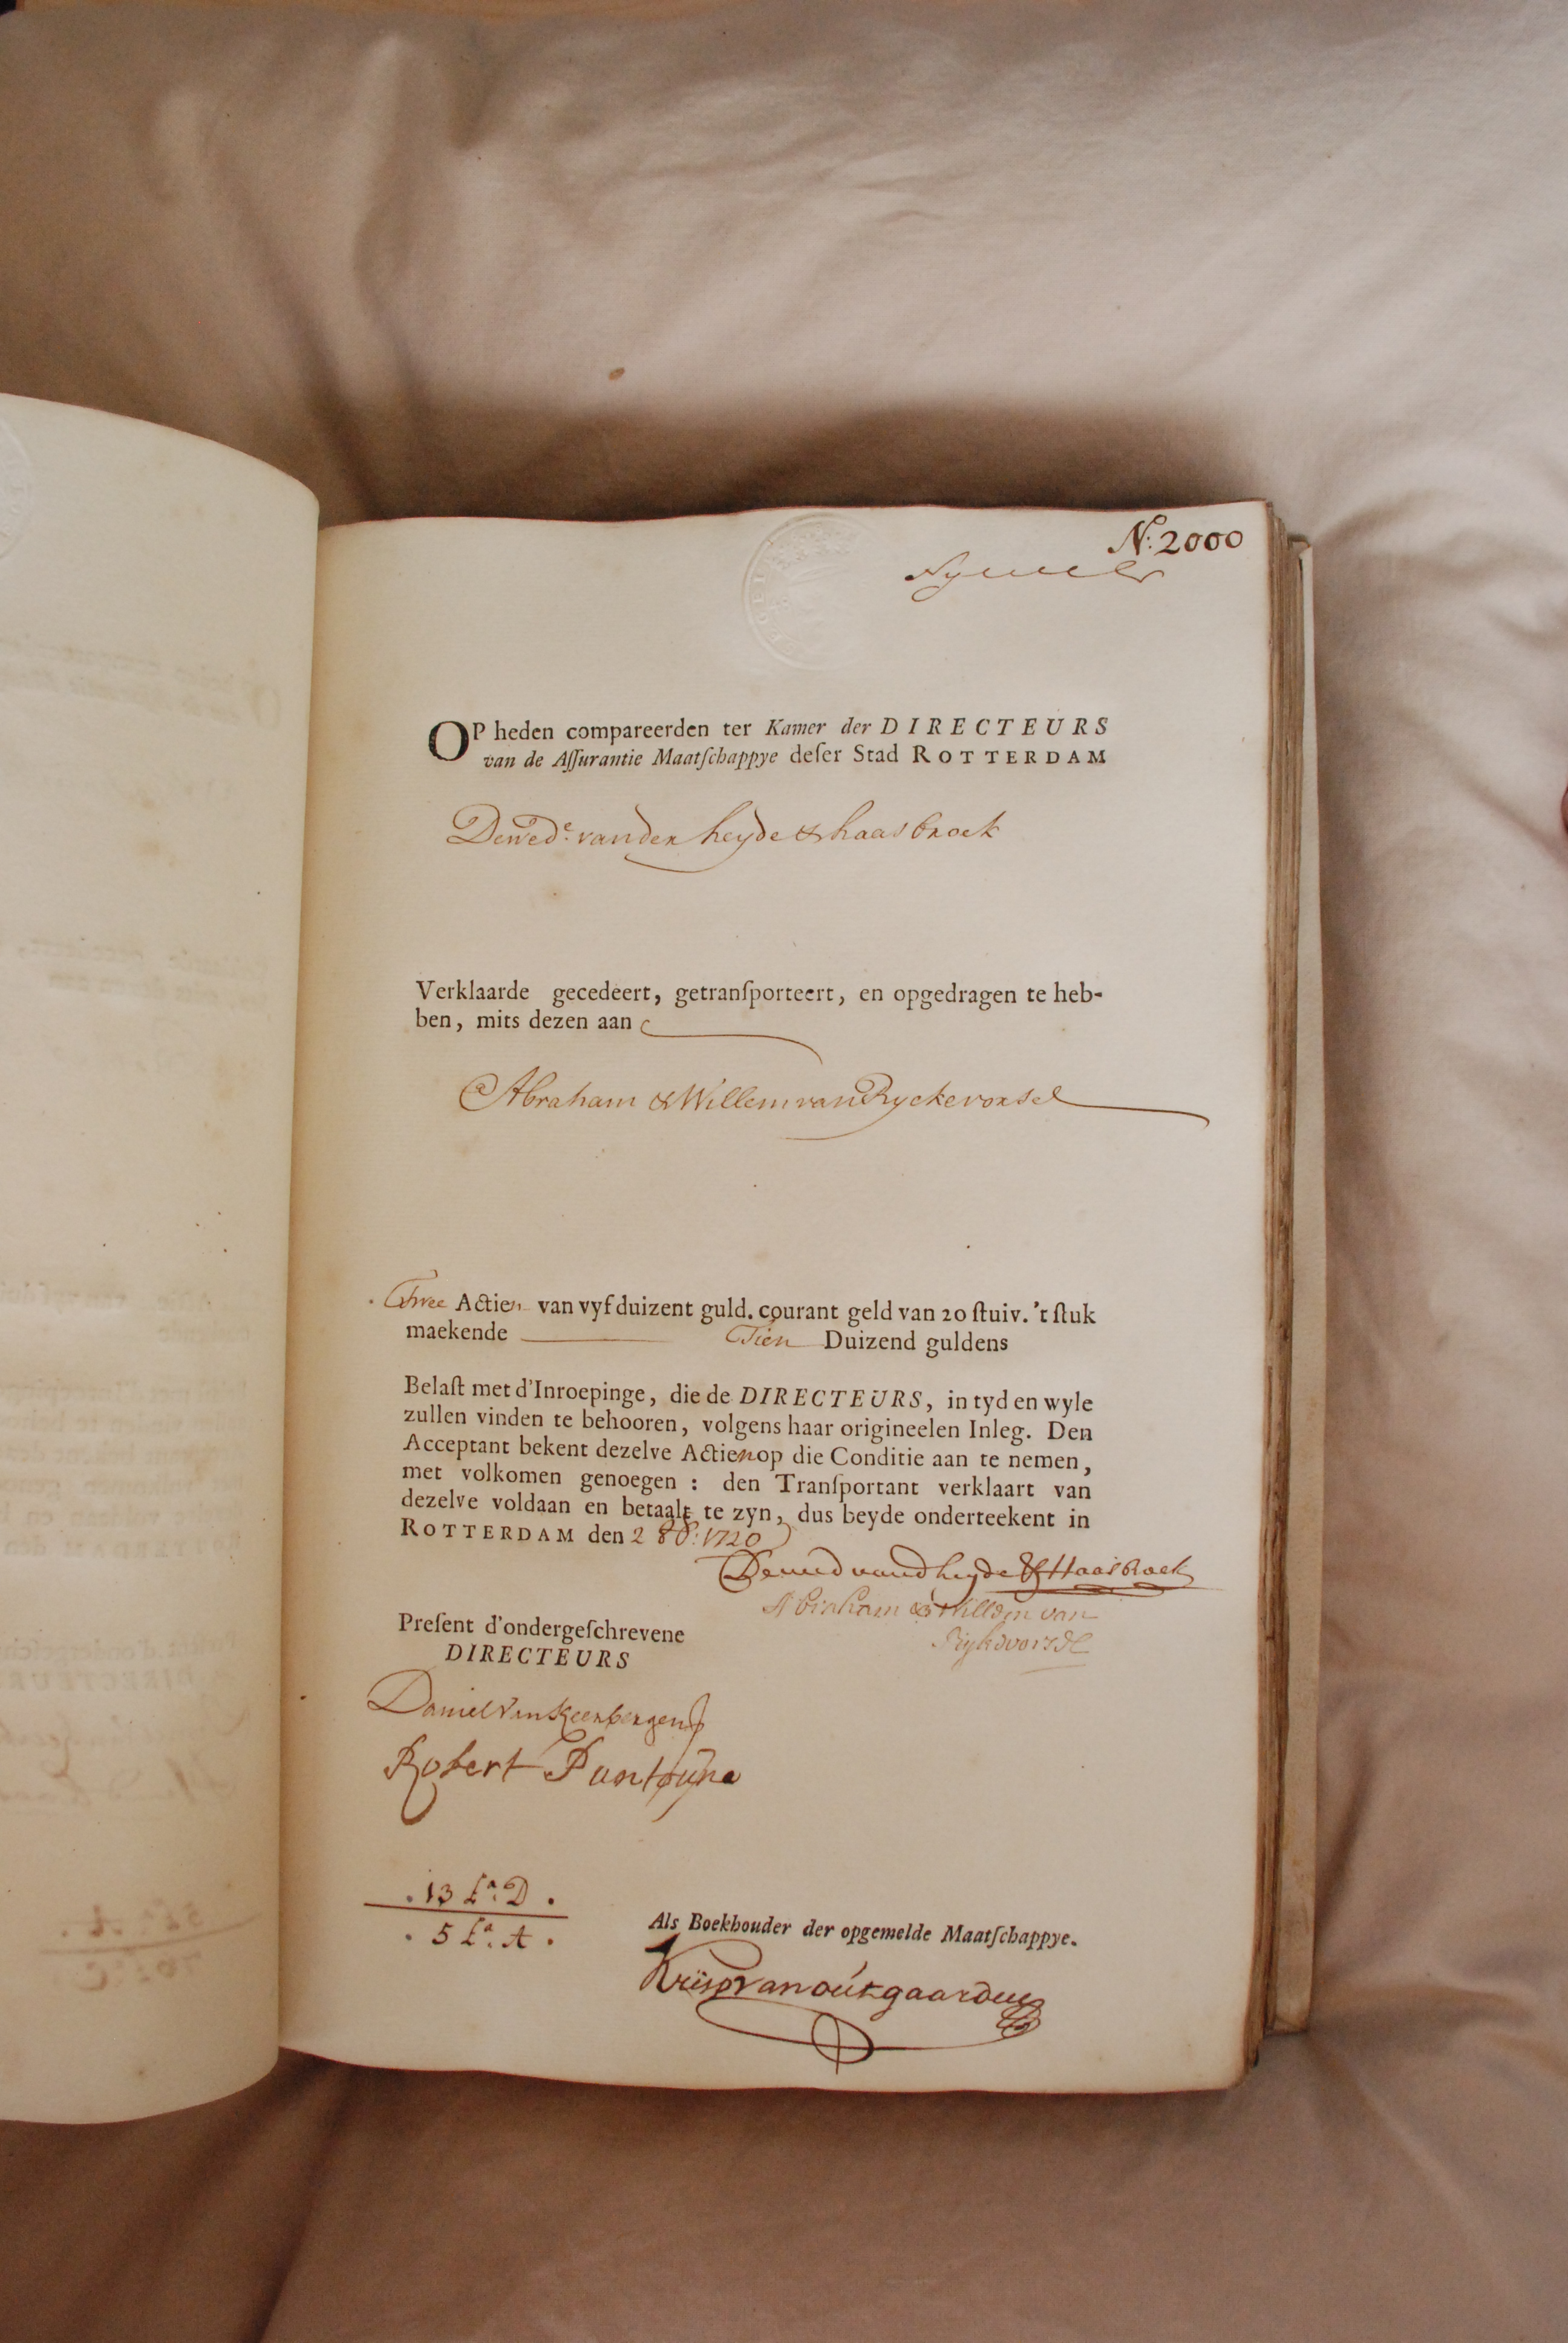 N: 2000
OP heden compareerden ter Kamer der DIRECTEURS
van de Aſſurantie Maatſchappye deſer Stad ROTTERDAM
Dewede. van der heyde & haasbroek
Verklaarde gecedeert, getranſporteert, en opgedragen te heb-
ben, mits dezen aan
Abraham & Willem van Ryckevorsel
Twee Actien van vyf duizent guld. courant geld van 20 ſtuiv. 't ſtuk
maekende Tien Duizend guldens
Belaſt met d'Inroepinge, die de DIRECTEURS, in tyd en wyle
zullen vinden te behooren, volgens haar origineelen Inleg. Den
Acceptant bekent dezelve Actien op die Conditie aan te nemen,
met volkomen genoegen : den Tranſportant verklaart van
dezelve voldaan en betaalt te zyn, dus beyde onderteekent in
ROTTERDAM den 2 8b: 1720
De wed vand heyde & Haasbroek
Abraham & Willem van
Rijkevorsel
Preſent d'ondergeſchrevene
DIRECTEURS
Daniel Van Keerbergen
Robert
. 13 La. D .
. 5 La. A .
Als Boekhouder der opgemelde Maatſchappye.